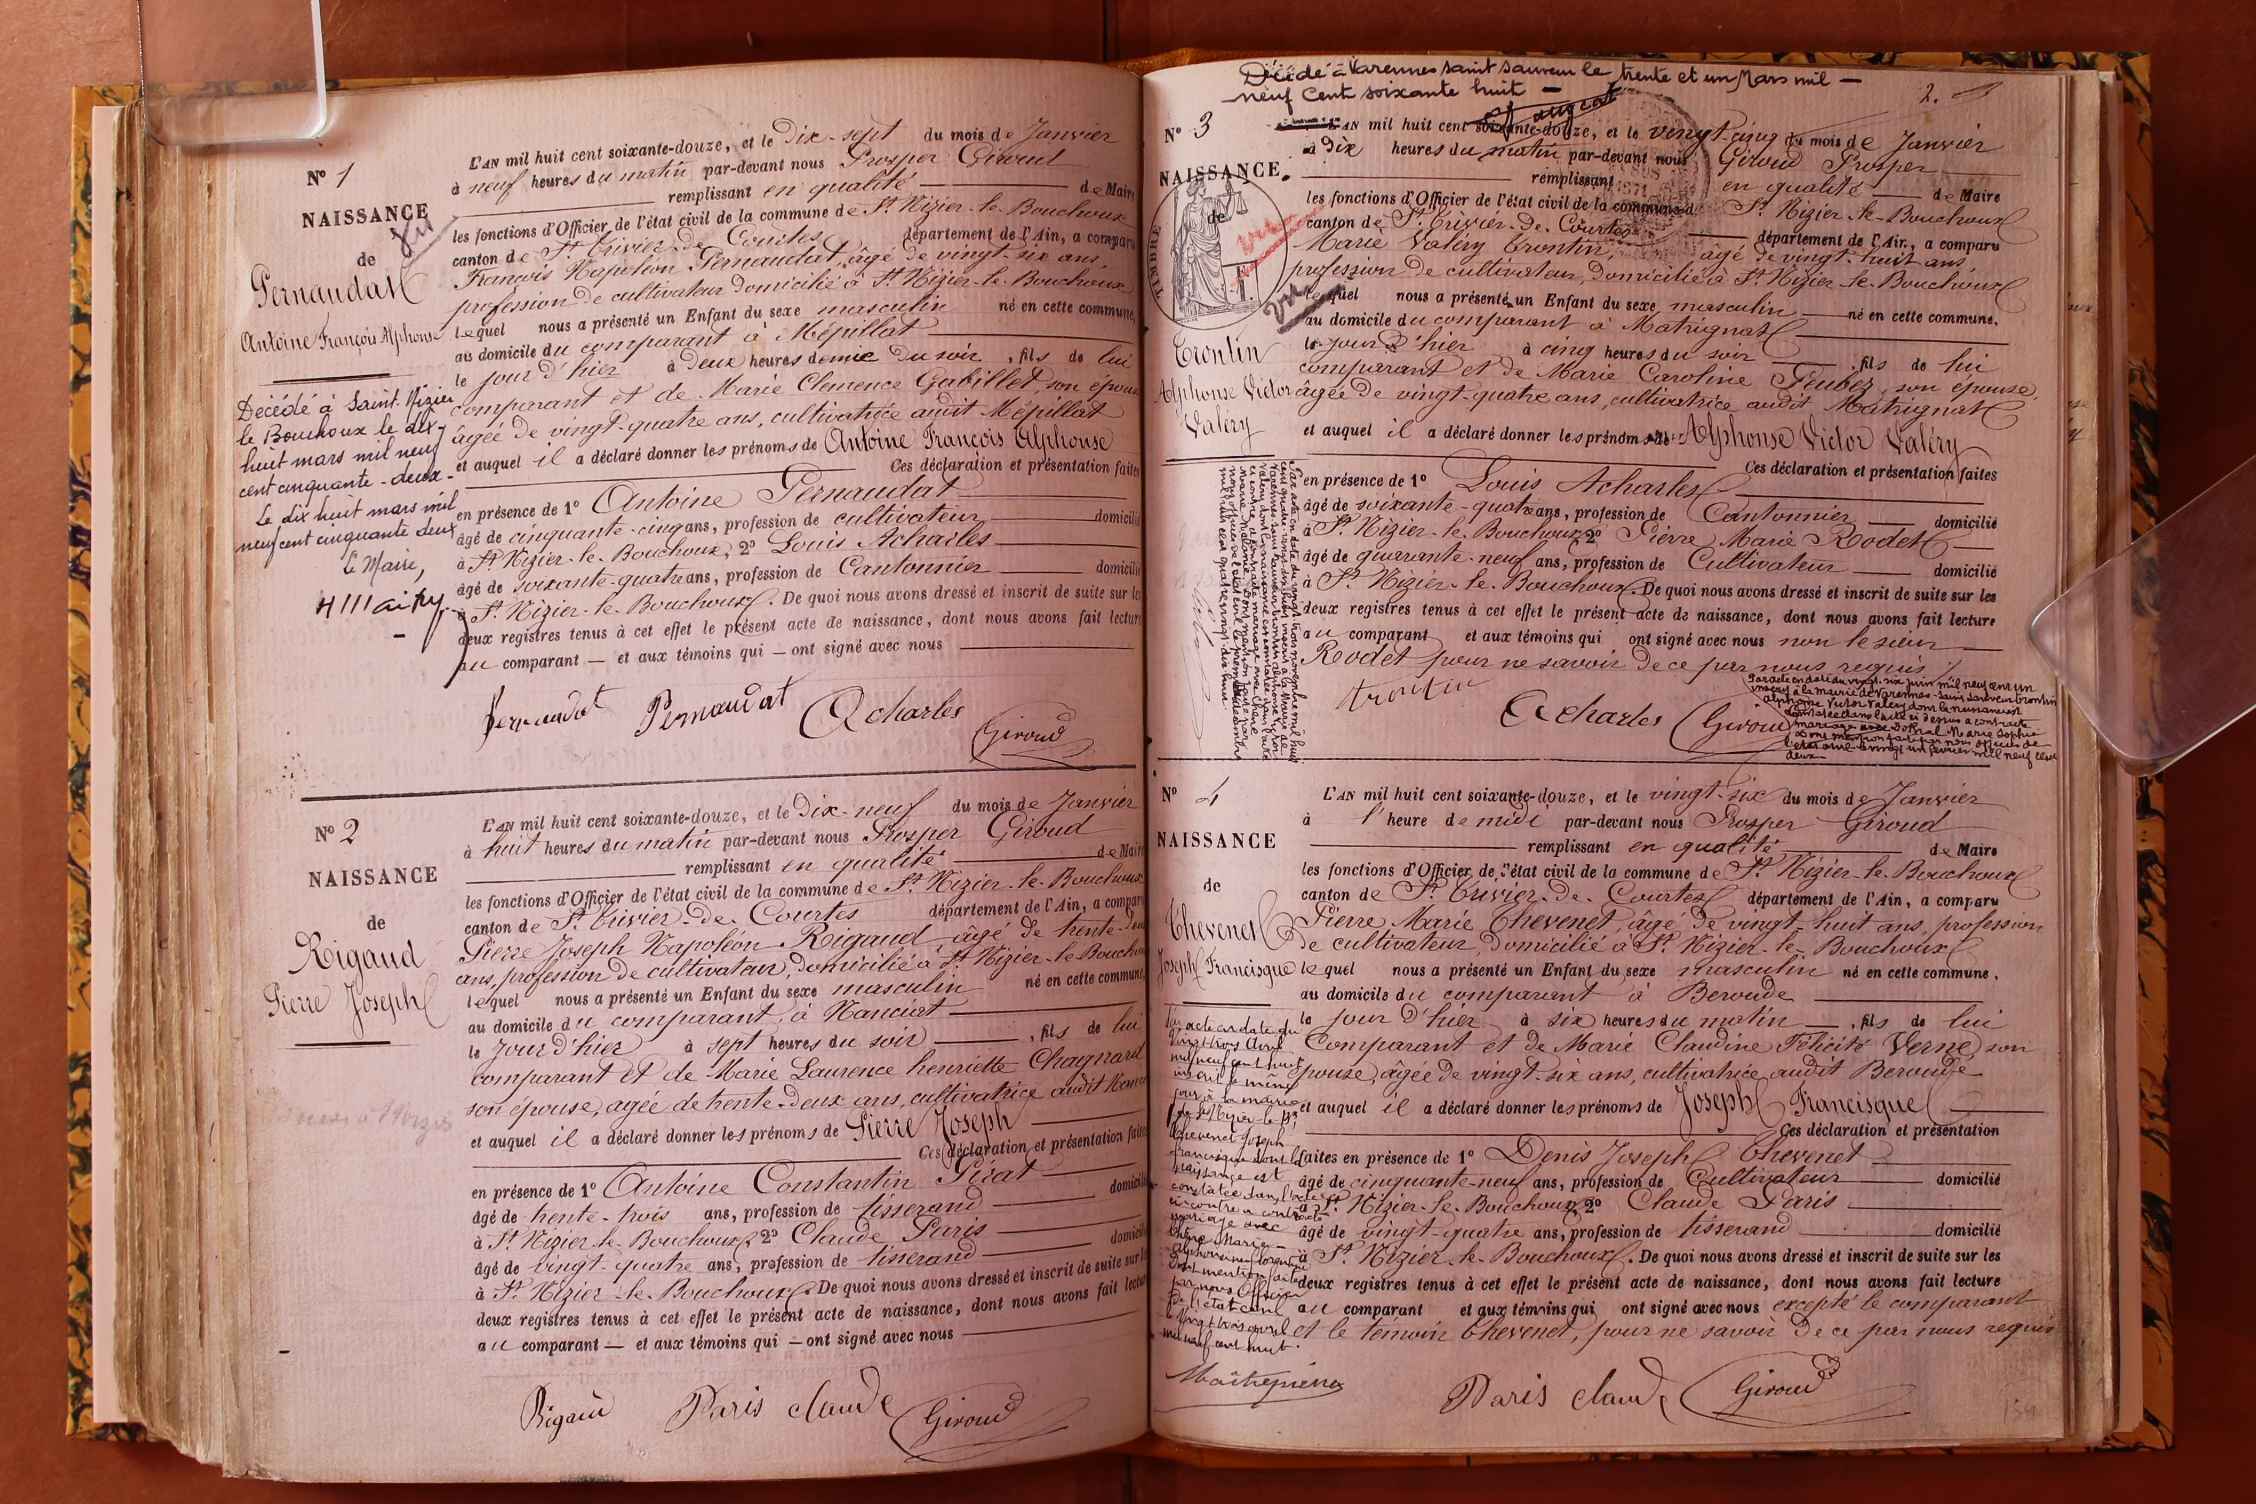 N° 1
NAISSANCE
de
vu
Pernaudat
Antoine François Alphonse
Décédé à Saint-Nizier
le Bouchoux le dix-
huit mars mil neuf
cent cinquante-deux.
Le dix huit mars mil
neuf cent cinquante deux
Le Maire,
L'AN mil huit cent soixante-douze, et le dix-sept du mois de Janvier
à neuf heures du matin par-devant nous Prosper Giroud
remplissant en qualité de Maire
les fonctions d'Officier de l'état civil de la commune de St Nizier-le-Bouchoux
canton de St Trivier-de-Courtes département de l'Ain, a comparu
François Napoléon Pernaudat, âgé de vingt-six ans,
profession de cultivateur domicilié à St Nizier-le-Bouchoux
lequel nous a présenté un Enfant du sexe masculin né en cette commune,
au domicile du comparant à Mépillat
le jour d'hier à deux heures demie du soir, fils de lui
comparant et de Marie Clémence Gabillet, son épouse
âgée de vingt-quatre ans, cultivatrice audit Mépillat
et auquel il a déclaré donner les prénoms de Antoine François Alphonse
Ces déclaration et présentation faites
en présence de 1° Antoine Pernaudat
âgé de cinquante-cinq ans, profession de cultivateur domicilié
à St Nizier-le-Bouchoux, 2° Louis Acharles
âgé de soixante-quatre ans, profession de Cantonnier domicilié
à St Nizier-le-Bouchoux. De quoi nous avons dressé et inscrit de suite sur les
deux registres tenus à cet effet le présent acte de naissance, dont nous avons fait lecture
au comparant — et aux témoins qui — ont signé avec nous
Pernaudat Pernaudat Acharles Giroud
N° 2
NAISSANCE
de
Rigaud
Pierre Joseph
L'AN mil huit cent soixante-douze, et le dix-neuf du mois de Janvier
à huit heures du matin par-devant nous Prosper Giroud
remplissant en qualité de Maire
les fonctions d'Officier de l'état civil de la commune de St Nizier-le-Bouchoux
canton de St Trivier-de-Courtes département de l'Ain, a comparu
Pierre Joseph Napoléon Rigaud, âgé de trente-deux
ans, profession de cultivateur, domicilié à St Nizier-le-Bouchoux
lequel nous a présenté un Enfant du sexe masculin né en cette commune,
au domicile du comparant, à Nanciat
le jour d'hier à sept heures du soir, fils de lui
comparant et de Marie Laurence henriette Chagnard
son épouse, âgée de trente-deux ans, cultivatrice audit
et auquel il a déclaré donner les prénoms de Pierre Joseph
Ces déclaration et présentation faites
en présence de 1° Antoine Constantin Pirat
âgé de trente-trois ans, profession de tisserand domicilié
à St Nizier-le-Bouchoux, 2° Claude Paris
âgé de vingt-quatre ans, profession de tisserand domicilié
à St Nizier-le-Bouchoux. De quoi nous avons dressé et inscrit de suite sur les
deux registres tenus à cet effet le présent acte de naissance, dont nous avons fait lecture
au comparant — et aux témoins qui — ont signé avec nous
Rigaud Paris Claude Giroud
Décédé à Varennes saint sauveur le trente et un Mars mil —
neuf cent soixante huit —
2.
N° 3
NAISSANCE
de
TIMBRE
vu
Trontin
Alphonse Victor
Valéry
L'AN mil huit cent soixante-douze, et le vingt-cinq du mois de Janvier
à dix heures du matin par-devant nous Giroud Prosper
remplissant en qualité de Maire
les fonctions d'Officier de l'état civil de la commune de St Nizier-le-Bouchoux
canton de St Trivier-de-Courtes département de l'Ain, a comparu
Marie Valéry Trontin, âgé de vingt-huit ans
profession de cultivateur, domicilié à St Nizier-le-Bouchoux
lequel nous a présenté un Enfant du sexe masculin né en cette commune,
au domicile du comparant à Matrignat
le jour d'hier à cinq heures du soir, fils de lui
comparant et de Marie Caroline Feubez, son épouse,
âgée de vingt-quatre ans, cultivatrice audit Matrignat
et auquel il a déclaré donner les prénoms de Alphonse Victor Valéry
Ces déclaration et présentation faites
en présence de 1° Louis Acharles
âgé de soixante-quatre ans, profession de Cantonnier domicilié
à St Nizier-le-Bouchoux, 2° Pierre Marie Rodet
âgé de quarante-neuf ans, profession de Cultivateur domicilié
à St Nizier-le-Bouchoux. De quoi nous avons dressé et inscrit de suite sur les
deux registres tenus à cet effet le présent acte de naissance, dont nous avons fait lecture
au comparant et aux témoins qui ont signé avec nous non le sieur
Rodet pour ne savoir de ce par nous requis
trontin Acharles Giroud
Par acte en date du vingt-six juin mil neuf cent un
inscrit à la mairie de Varennes-Saint Sauveur trontin
alphonse Victor Valéry dont la naissance est
constatée dans l'acte ci dessus a contracté
mariage avec Marie Sophie
Dont mention faite par nous officier de
l'état civil février mil neuf cent
deux
N° 4
NAISSANCE
de
Thevenet
Joseph Francisque
Par acte en date du
vingt trois avril
mil neuf cent huit
inscrit le même
jour à la mairie
de St Nizier-le-Bx
Thevenet Joseph
francisque dont la
naissance est
constatée dans l'acte
ci-contre a contracté
mariage avec
Marie
Dont mention faite
par nous Officier
de l'état civil
le vingt trois avril
mil neuf cent huit.
L'AN mil huit cent soixante-douze, et le vingt-six du mois de Janvier
à l'heure de midi par-devant nous Prosper Giroud
remplissant en qualité de Maire
les fonctions d'Officier de l'état civil de la commune de St Nizier-le-Bouchoux
canton de St Trivier-de-Courtes département de l'Ain, a comparu
Pierre Marie Thevenet, âgé de vingt-huit ans, profession
de cultivateur, domicilié à St Nizier-le-Bouchoux
lequel nous a présenté un Enfant du sexe masculin né en cette commune,
au domicile du comparant à Beroude
le jour d'hier à six heures du matin, fils de lui
Comparant et de Marie Claudine Félicité Verne, son
épouse, âgée de vingt-six ans, cultivatrice audit Beroude
et auquel il a déclaré donner les prénoms de Joseph Francisque
Ces déclaration et présentation
faites en présence de 1° Denis Joseph Thevenet
âgé de cinquante-neuf ans, profession de Cultivateur domicilié
à St Nizier-le-Bouchoux, 2° Claude Paris
âgé de vingt-quatre ans, profession de tisserand domicilié
à St Nizier-le-Bouchoux. De quoi nous avons dressé et inscrit de suite sur les
deux registres tenus à cet effet le présent acte de naissance, dont nous avons fait lecture
au comparant et aux témoins qui ont signé avec nous excepté le comparant
et le témoin Thevenet, pour ne savoir de ce par nous requis
Paris Claude Giroud